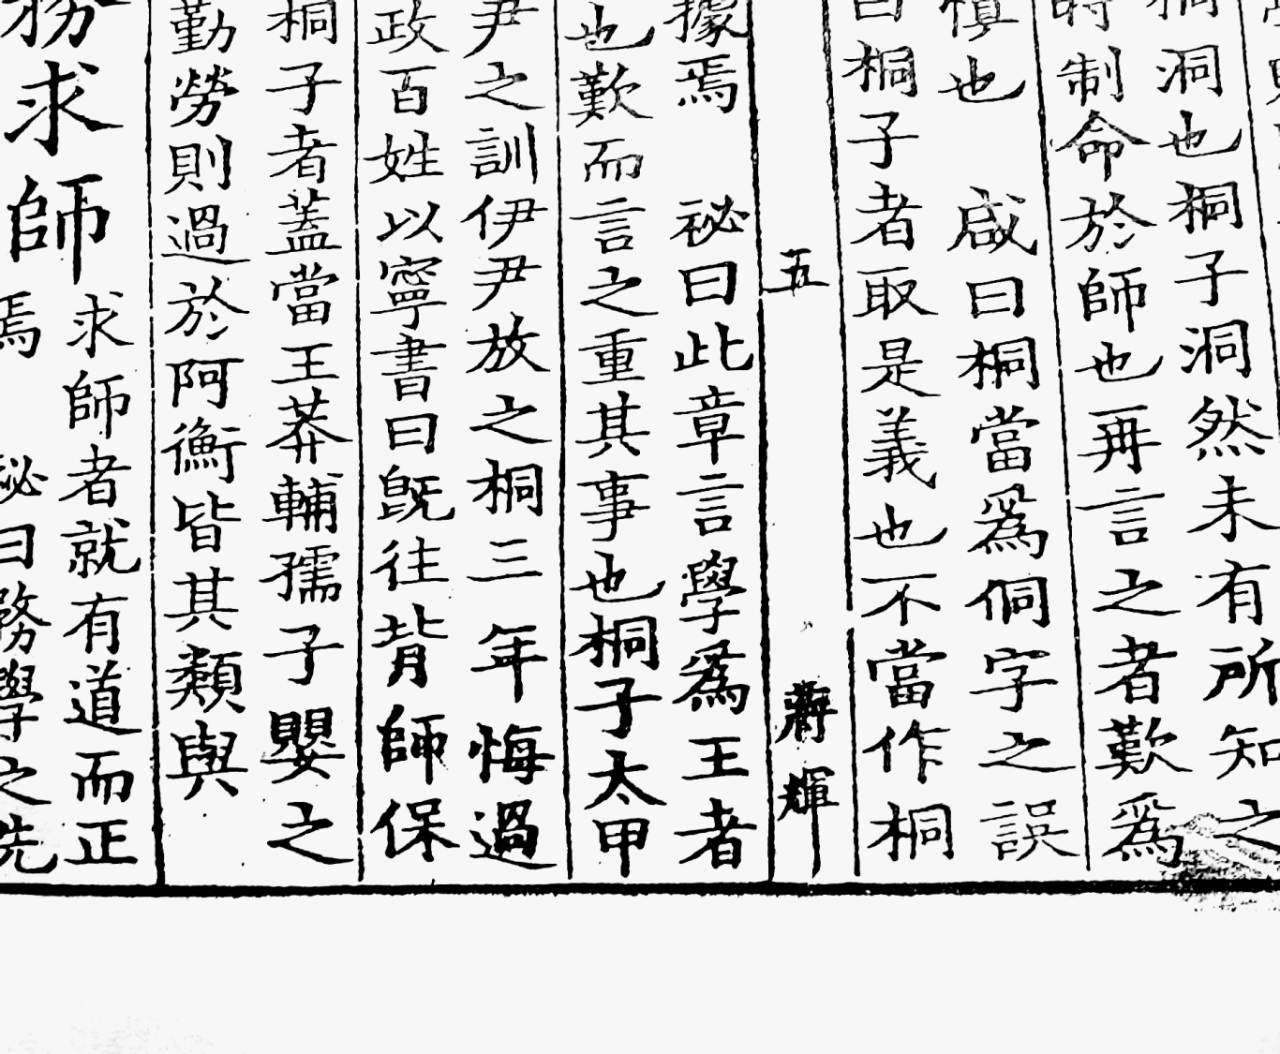 洞也桐子洞然未有所知之
時制命於師也再言之者歎爲
愼也　咸曰桐當爲侗字之誤
曰桐子者取是義也不當作桐
五　蔣輝
據焉　祕曰此章言學爲王者
也歎而言之重其事也桐子太甲
尹之訓伊尹放之桐三年悔過
政百姓以寧書曰旣往背師保
桐子者蓋當王莽輔孺子嬰之
勤勞則過於阿衡皆其類與
務求師
求師者就有道而正
焉　祕曰務學之先